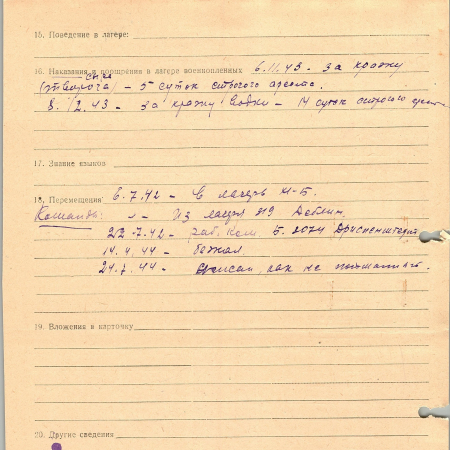 15. Поведение в лагере:
16. Наказания и поощрения в лагере военнопленных 6.11.43 - за кражу
сыра
(творога) - 5 суток строгого ареста.
8.12.43 - за кражу водки - 14 суток строгого ареста
17. Знание языков
18. Перемещения 6.7.42 - в лагерь
Команды: -"- Из лагеря 319
22.7.42 - раб. ком.
14.4.44 - бежал.
24.7.44 - списан, как не пойманный.
19. Вложения в карточку
20. Другие сведения